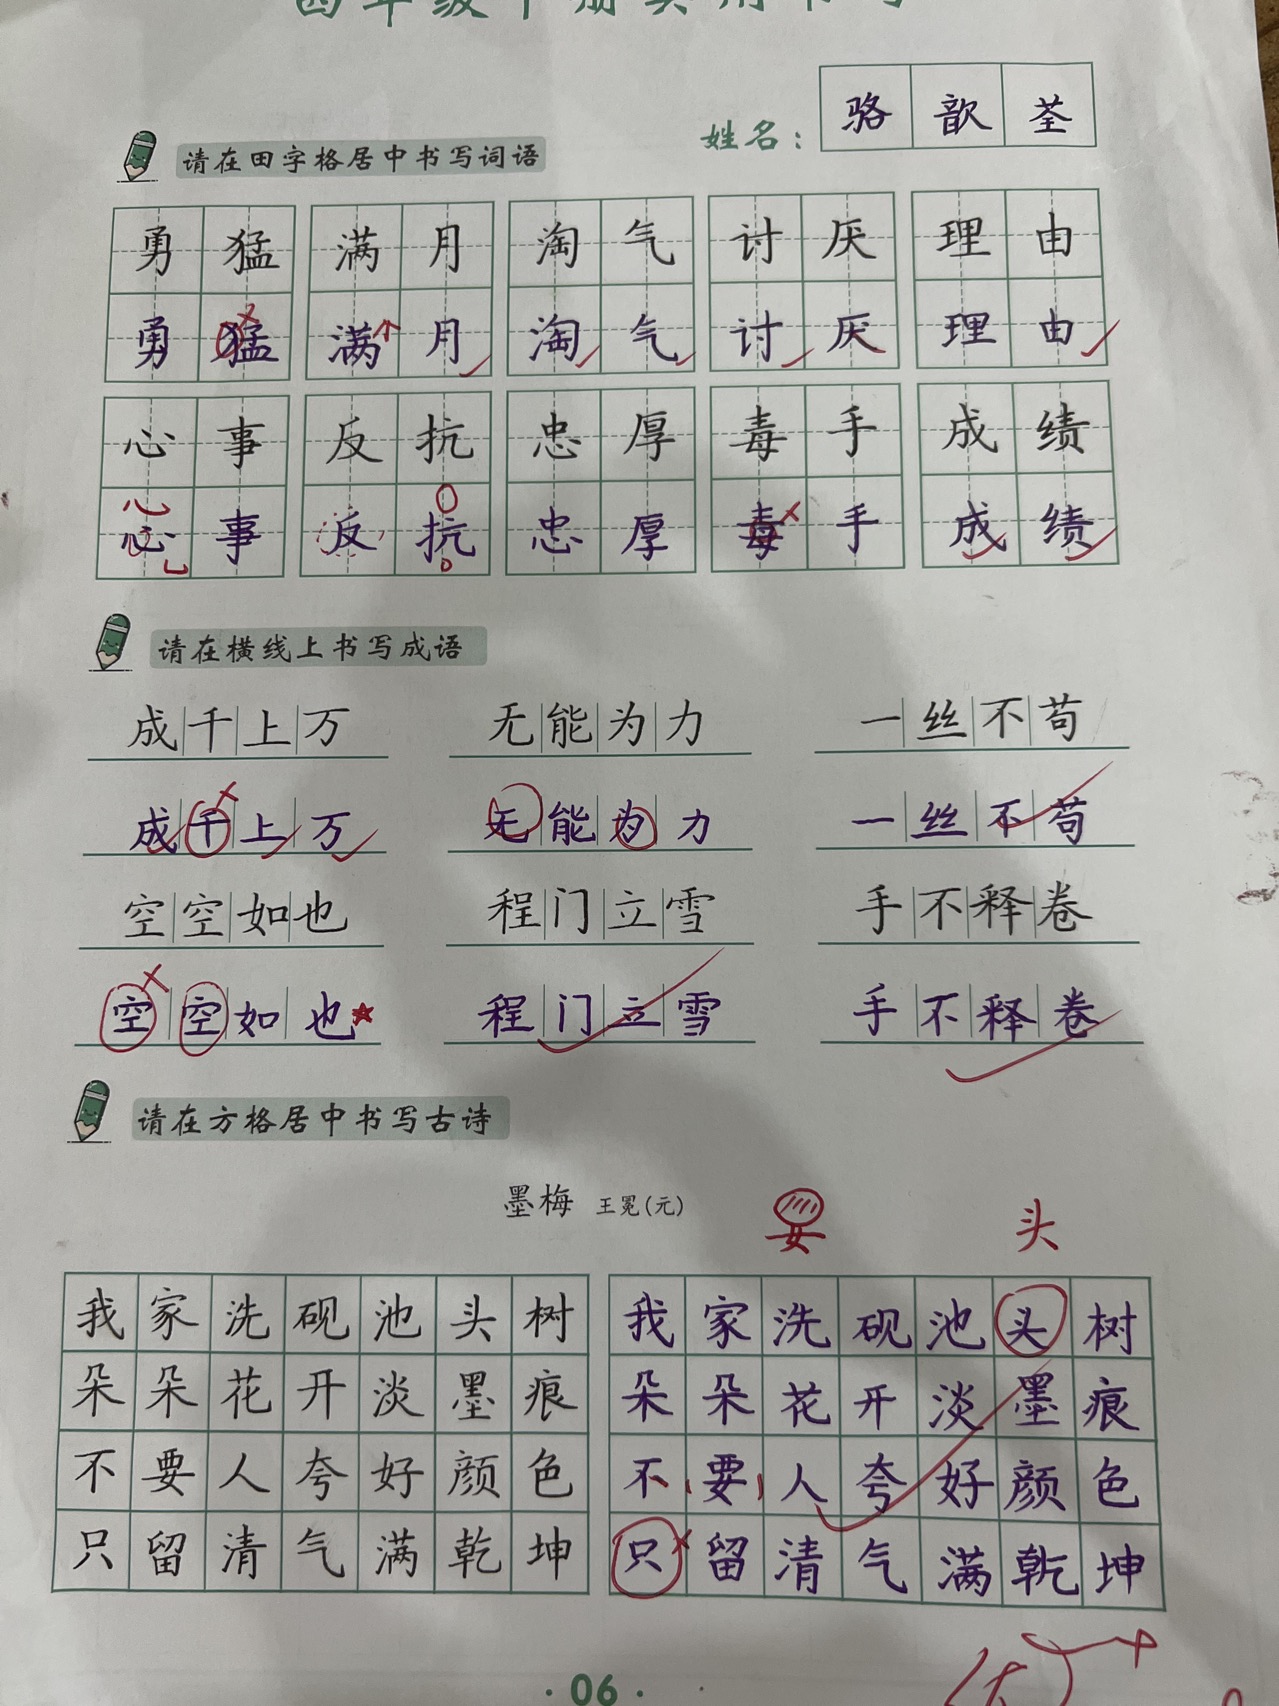 姓名：骆歆荃
请在田字格居中书写词语
勇猛 满月 淘气 讨厌 理由
勇猛 满月 淘气 讨厌 理由
心事 反抗 忠厚 毒手 成绩
心事 反抗 忠厚 毒手 成绩
请在横线上书写成语
成千上万 无能为力 一丝不苟
成千上万 无能为力 一丝不苟
空空如也 程门立雪 手不释卷
空空如也 程门立雪 手不释卷
请在方格居中书写古诗
墨梅 王冕(元)
要 头
我家洗砚池头树 我家洗砚池头树
朵朵花开淡墨痕 朵朵花开淡墨痕
不要人夸好颜色 不要人夸好颜色
只留清气满乾坤 只留清气满乾坤
·06·